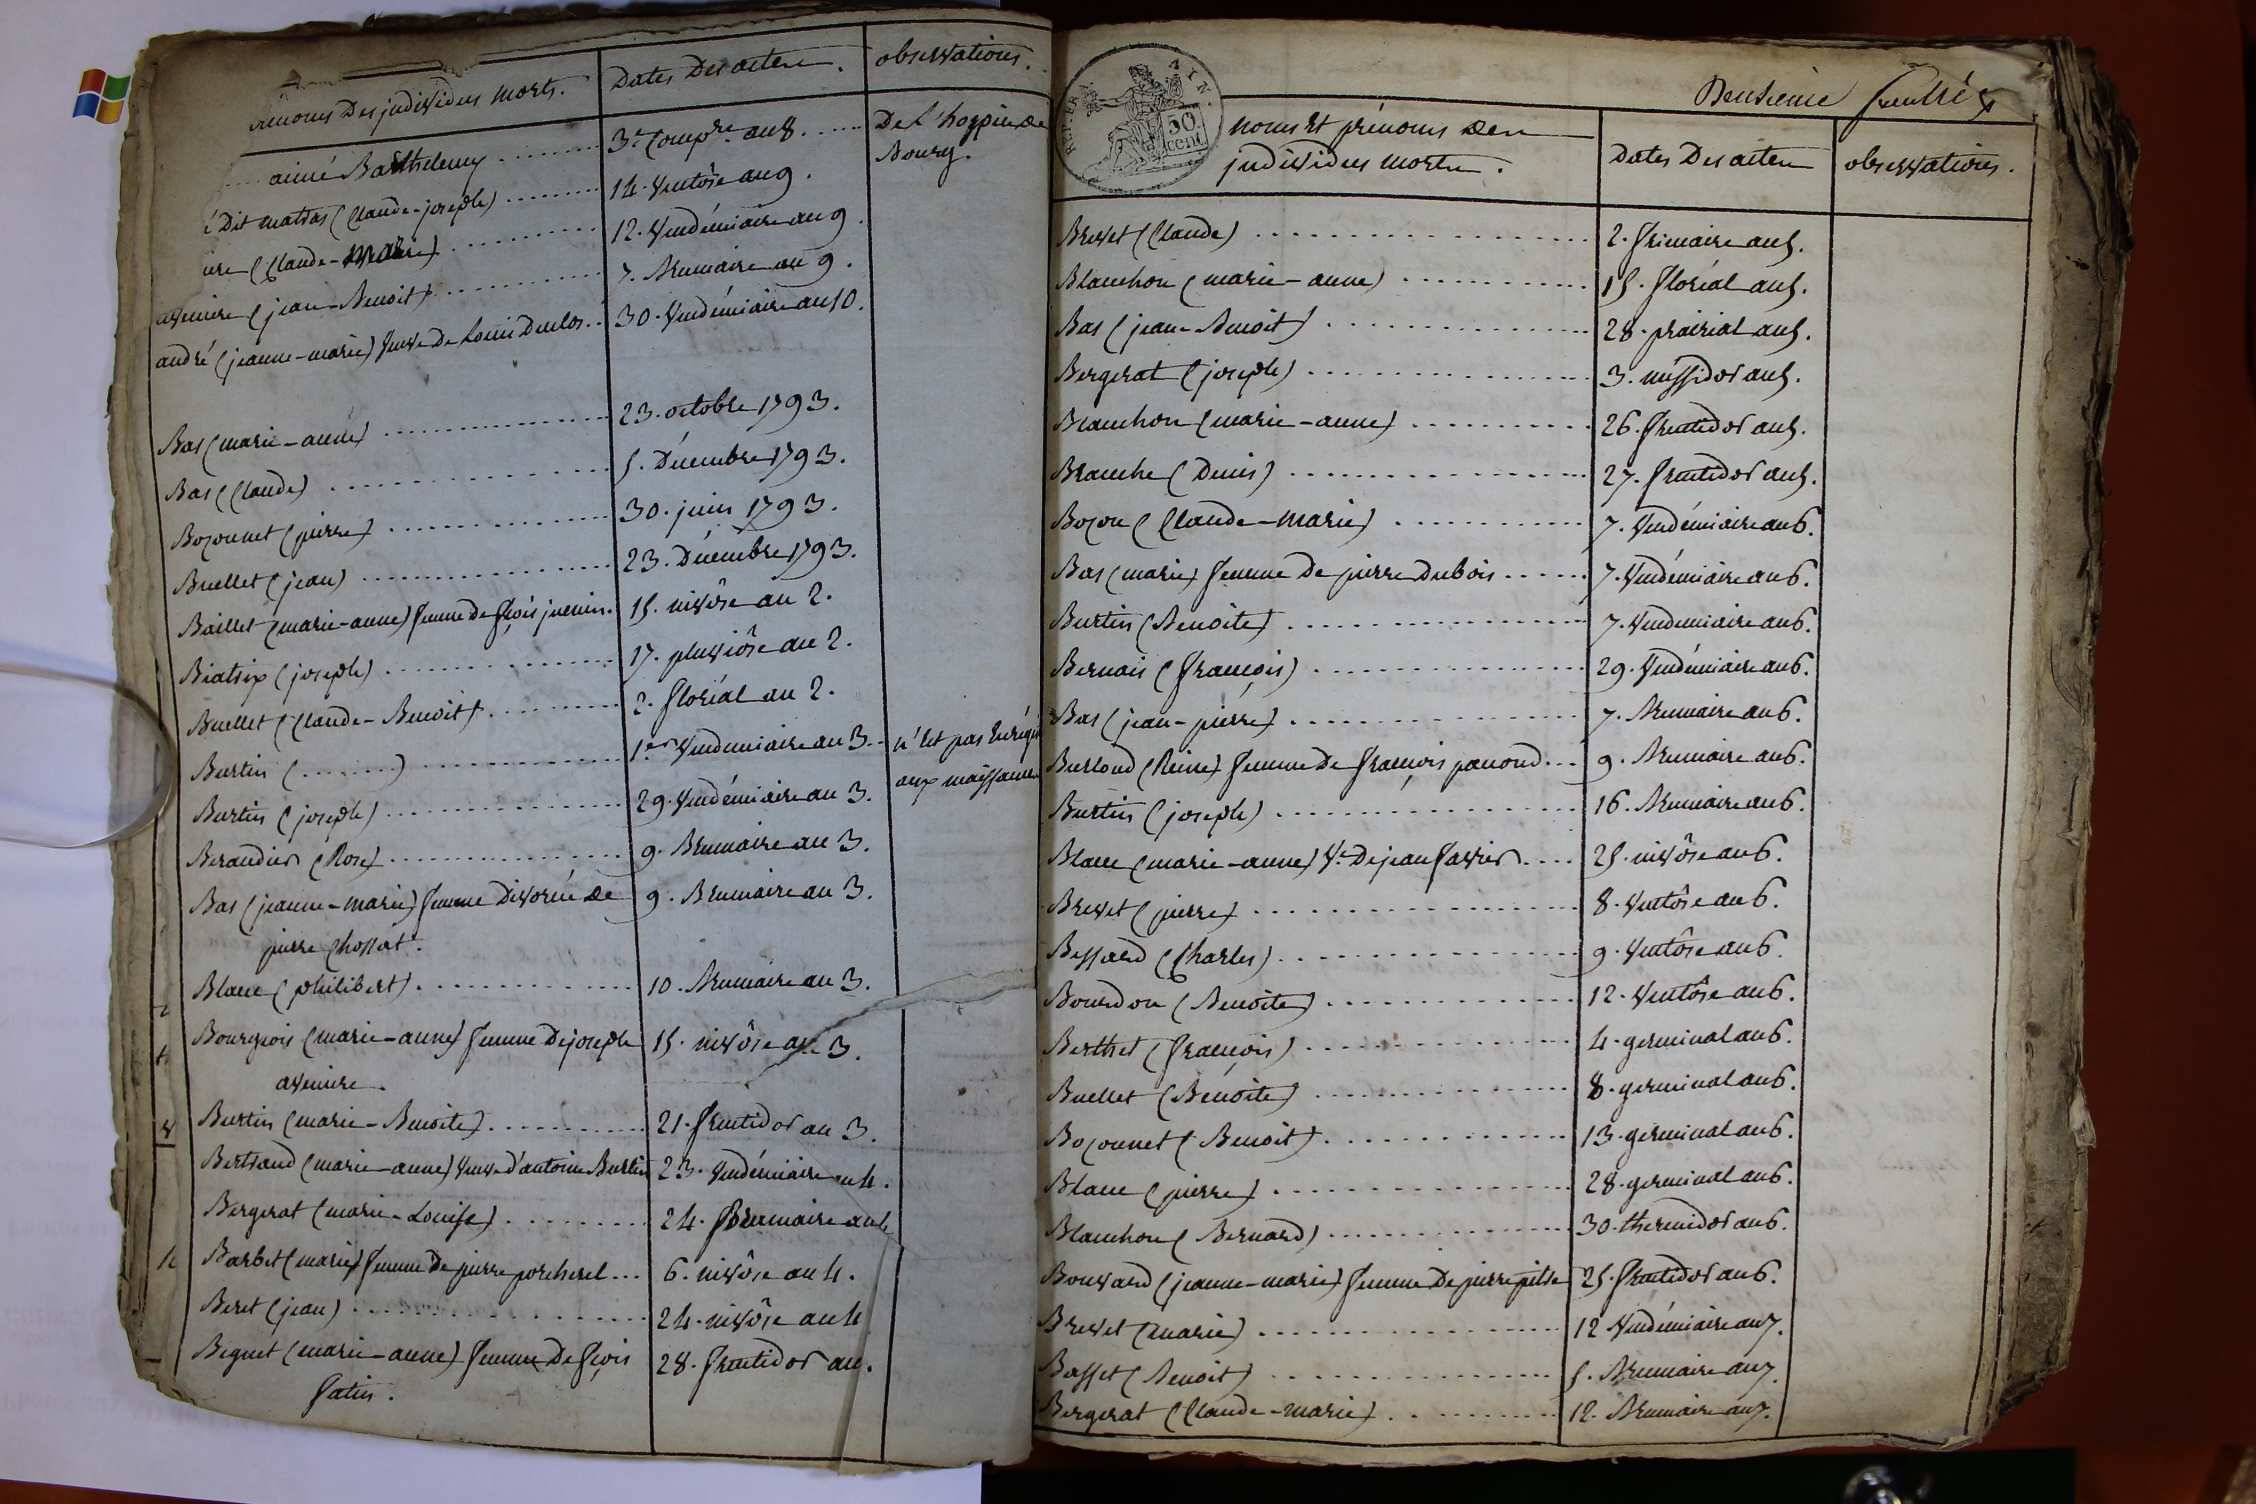 prénoms Des individus morts. Dates Des actes. observations.
aimé Barthelemy 3e. Compre. an 8. De l'hospice de
Bourg.
é Dit matras (Claude-joseph) 14. Ventôse an 9.
(Claude-Marie) 12. Vendémiaire an 9.
avenire (jean-Benoit) 7. Brumaire an 9.
andré (jeanne-marie) veuve De Louis Duclos. 30. Vendémiaire an 10.
Bas (marie-anne) 23. octobre 1793.
Bas (Claude) 5. Décembre 1793.
Bozonnet (pierre) 30. juin 1793.
Buellet (jean) 23. Décembre 1793.
Baillet (marie-anne) femme de fçois juenin. 15. nivôse an 2.
Biatrix (joseph) 17. pluviôse an 2.
Buellet (Claude-Benoit) 2. floréal an 2.
Burtin (........) 1er. Vendemiaire an 3. n'est pas Enrégis
aux naissances
Burtin (joseph) 29. Vendémiaire an 3.
Beraudier (Rose) 9. Brumaire an 3.
Bas (jeanne-marie) femme Divorcée de 9. Brumaire an 3.
pierre Chossat.
Blanc (philibert) 10. Brumaire an 3.
Bourgeois (marie-anne) femme De joseph 15. nivôse an 3.
avenire.
Burtin (marie-Benoite) 21. fructidor an 3.
Bertrand (marie-anne) veuve d'antoine Burtin 23. Vendémiaire an 4.
Bergerat (marie-Louise) 24. Brumaire an 4
Barbet (marie) femme De pierre porcherel 6. nivôse an 4.
Beret (jean) 24. nivôse an 4
Beguet (marie-anne) femme De fçois 28. fructidor an.
fatin.
REP. FRA. AYN.
50 cent.
Deuxieme
noms Et prénoms des
individus morts. Dates Des actes observations.
Brevet (Claude) 2. frimaire an 5.
Blanchon (marie-anne) 15. floréal an 5.
Bas (jean-Benoit) 28. prairial an 5.
Bergerat (joseph) 3. messidor an 5.
Blanchon (marie-anne) 26. fructidor an 5.
Blanche (Denis) 27. fructidor an 5.
Bozon (Claude-Marie) 7. Vendémiaire an 6.
Bas (marie) femme De pierre Dubois 7. Vendémiaire an 6.
Burtin (Benoite) 7. Vendemiaire an 6.
Bernais (françois) 29. Vendémiaire an 6.
Bas (jean-pierre) 7. Brumaire an 6.
Burloud (Reine) femme De françois panoud 9. Brumaire an 6.
Burtin (joseph) 16. Brumaire an 6.
Blanc (marie-anne) Ve. De jean favier 25. nivôse an 6.
Brevet (pierre) 8. Ventôse an 6.
Bessard (Charles) 9. Ventôse an 6.
Bourdon (Benoite) 12. Ventôse an 6.
Berthet (françois) 4. germinal an 6.
Buellet (Benoite) 8. germinal an 6.
Bozonnet (Benoit) 13. germinal an 6.
Blanc (pierre) 28. germinal an 6.
Blanchon (Bernard) 30. thermidor an 6.
Bouvard (jeanne-marie) femme De pierre pitre 25. fructidor an 6.
Brevet (marie) 12 Vendémiaire an 7.
Basset (Benoit) 5. Brumaire an 7.
Bergerat (Claude-marie) 12. Brumaire an 7.